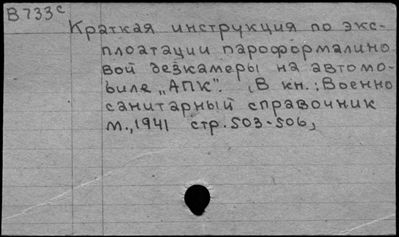 В733с
Краткая инструкция по экс-
плоатации пароформалино
вой дезкамеры на автомо-
биле „АПК". В кн.: Военно
санитарный справочник
М., 1941 стр. 503-506,